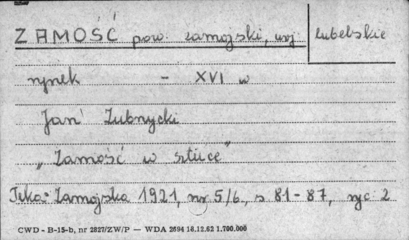 ZAMOŚĆ pow. zamojski, woj. lubelskie
rynek - XVI w
Jan Zubnycki
"Zamość w sztuce"
Teka Zamojska 1921, nr 5/6, s 81-87, ryc 2
CWD - B-15-b, nr 2827/ZW/P — WDA 2694 18.12.62 1.700.000